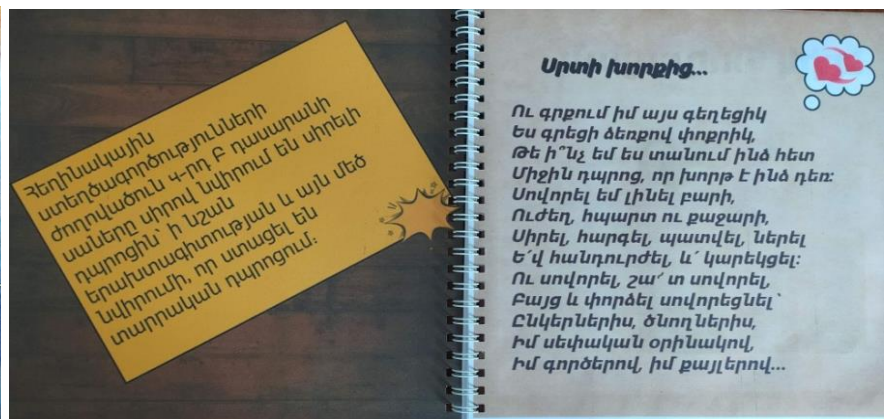 Հեղինակային
ստեղծագործությունների
ժողովածուն 4-րդ Բ դասարանի
սաները սիրով նվիրում են սիրելի
դպրոցին՝ ի նշան
երախտագիտության և այն մեծ
նվիրումի, որ ստացել են
տարրական դպրոցում:
Սրտի խորքից...
Ու գրքում իմ այս գեղեցիկ
Ես գրեցի ձեռքով փոքրիկ,
Թե ի՞նչ եմ ես տանում ինձ հետ
Միջին դպրոց, որ խորթ է ինձ դեռ:
Սովորել եմ լինել բարի,
Ուժեղ, հպարտ ու քաջարի,
Սիրել, հարգել, պատվել, ներել
Ե՛վ հանդուրժել, և՛ կարեկցել:
Ու սովորել, շա՛ տ սովորել,
Բայց և փորձել սովորեցնել՝
Ընկերներիս, ծնողներիս,
Իմ սեփական օրինակով,
Իմ գործերով, իմ քայլերով...